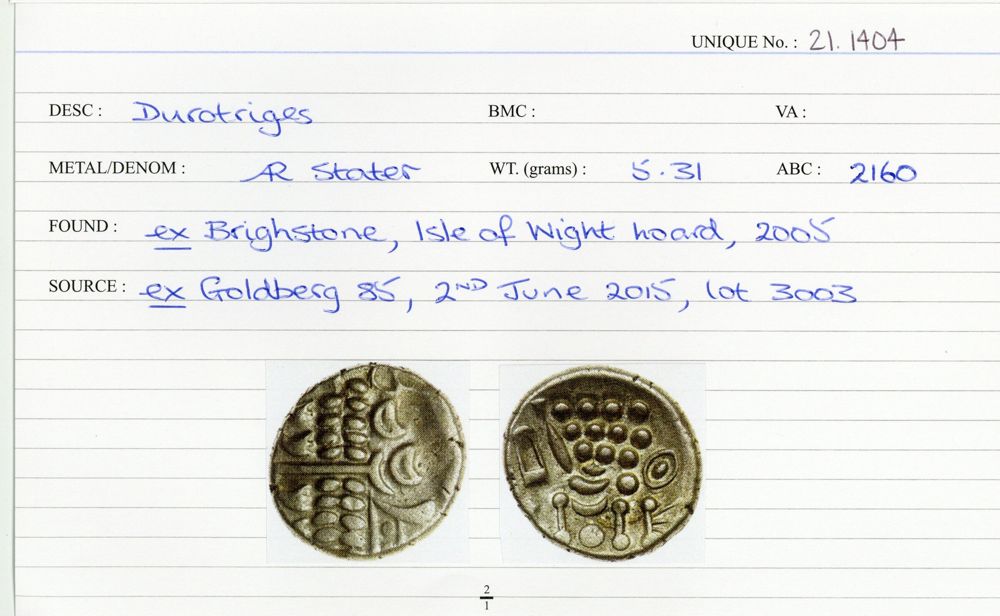 UNIQUE No. : 21.1404
DESC : Durotriges BMC : VA :
METAL/DENOM : AR Stater WT. (grams) : 5.31 ABC : 2160
FOUND : ex Brighstone, Isle of Wight hoard, 2005
SOURCE : ex Goldberg 85, 2ND June 2015, lot 3003
2
1